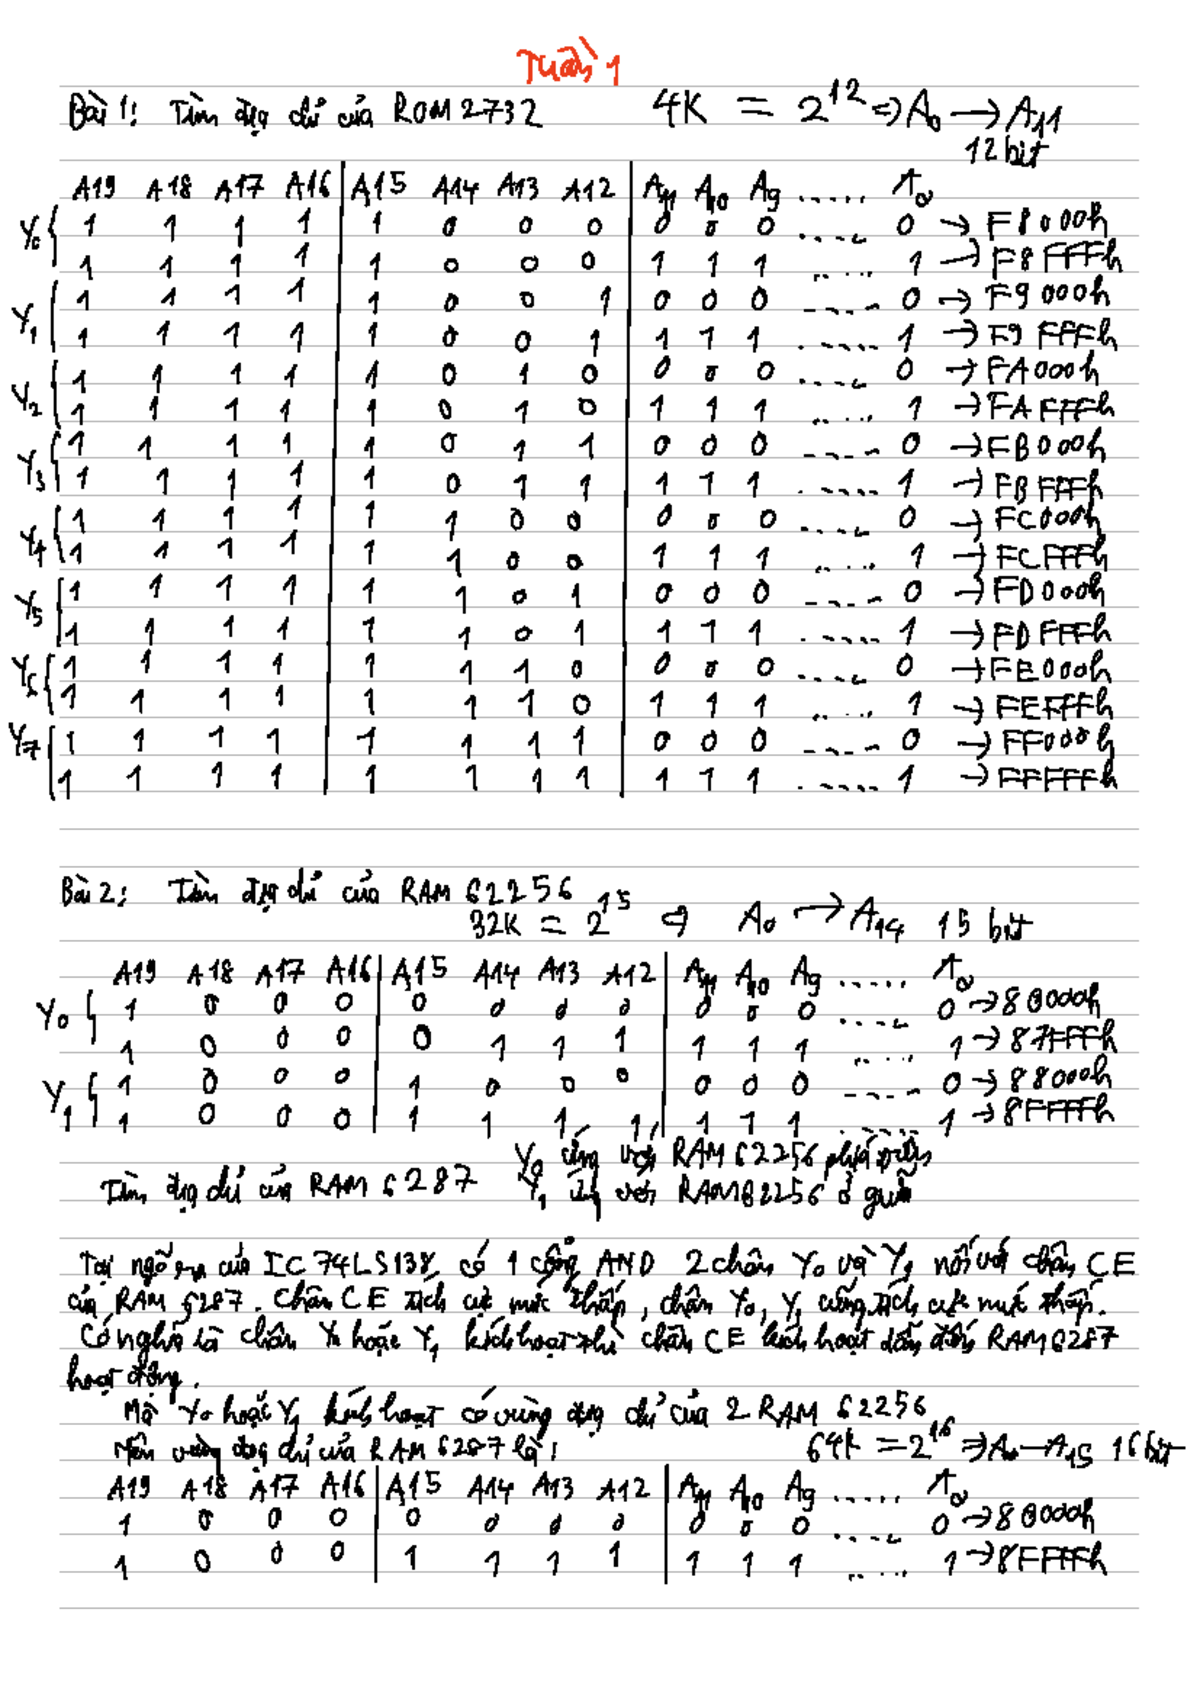 Tuần 1
Bài 1: Tìm địa chỉ của ROM 2732 4K = 2^12 => A0 → A11
12 bit
A19 A18 A17 A16 A15 A14 A13 A12 A11 A10 A9 ..... A0
Y0 1 1 1 1 1 0 0 0 0 0 0 ..... 0 → F8000h
1 1 1 1 1 0 0 0 1 1 1 ..... 1 → F8FFFh
Y1 1 1 1 1 1 0 0 1 0 0 0 ..... 0 → F9000h
1 1 1 1 1 0 0 1 1 1 1 ..... 1 → F9FFFh
Y2 1 1 1 1 1 0 1 0 0 0 0 ..... 0 → FA000h
1 1 1 1 1 0 1 0 1 1 1 ..... 1 → FAFFFh
Y3 1 1 1 1 1 0 1 1 0 0 0 ..... 0 → FB000h
1 1 1 1 1 0 1 1 1 1 1 ..... 1 → FBFFFh
Y4 1 1 1 1 1 1 0 0 0 0 0 ..... 0 → FC000h
1 1 1 1 1 1 0 0 1 1 1 ..... 1 → FCFFFh
Y5 1 1 1 1 1 1 0 1 0 0 0 ..... 0 → FD000h
1 1 1 1 1 1 0 1 1 1 1 ..... 1 → FDFFFh
Y6 1 1 1 1 1 1 1 0 0 0 0 ..... 0 → FE000h
1 1 1 1 1 1 1 0 1 1 1 ..... 1 → FEFFFh
Y7 1 1 1 1 1 1 1 1 0 0 0 ..... 0 → FF000h
1 1 1 1 1 1 1 1 1 1 1 ..... 1 → FFFFFh
Bài 2: Tìm địa chỉ của RAM 62256
32K = 2^15 => A0 → A14 15 bit
A19 A18 A17 A16 A15 A14 A13 A12 A11 A10 A9 ..... A0
Y0 1 0 0 0 0 0 0 0 0 0 0 ..... 0 → 80000h
1 0 0 0 0 1 1 1 1 1 1 ..... 1 → 87FFFh
Y1 1 0 0 0 1 0 0 0 0 0 0 ..... 0 → 88000h
1 0 0 0 1 1 1 1 1 1 1 ..... 1 → 8FFFFh
Y0 ứng với RAM 62256 phía trên
Tìm địa chỉ của RAM 6287 Y1 ứng với RAM 62256 ở giữa
Tại ngõ ra của IC 74LS138 có 1 cổng AND 2 chân Y0 và Y1 nối với chân CE
của RAM 6287. Chân CE tích cực mức thấp, chân Y0, Y1 cũng tích cực mức thấp.
Có nghĩa là chân Y0 hoặc Y1 kích hoạt thì chân CE kích hoạt dẫn đến RAM 6287
hoạt động.
Mà Y0 hoặc Y1 kích hoạt có vùng địa chỉ của 2 RAM 62256
Nên vùng địa chỉ của RAM 6287 là: 64K = 2^16 => A0 → A15 16 bit
A19 A18 A17 A16 A15 A14 A13 A12 A11 A10 A9 ..... A0
1 0 0 0 0 0 0 0 0 0 0 ..... 0 → 80000h
1 0 0 0 1 1 1 1 1 1 1 ..... 1 → 8FFFFh